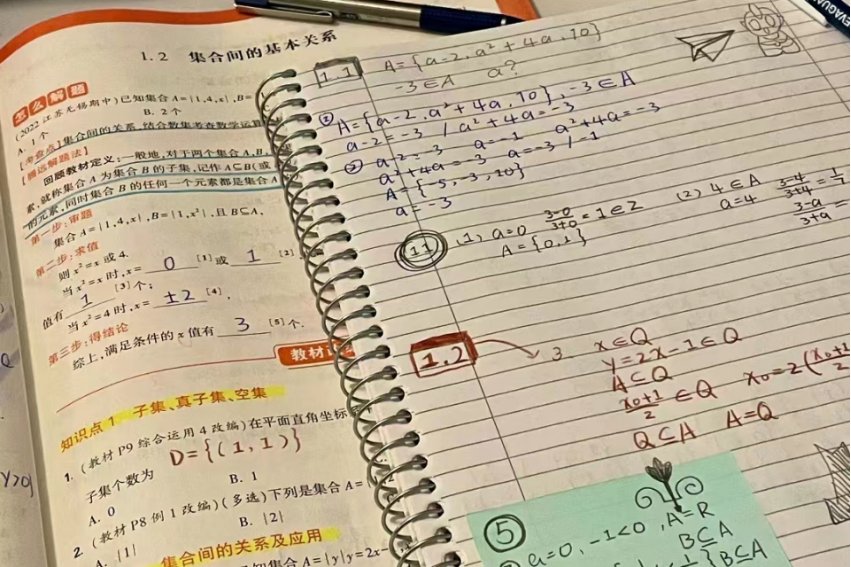 1.2 集合间的基本关系
怎么解题
(2022江苏无锡期中)已知集合A={1,4,x},B=
A. 1个 B. 2个
[考查点]集合间的关系,结合数集考查数学运算
[腾远解题法]
回顾教材定义:一般地,对于两个集合A,B,
素,就称集合A为集合B的子集,记作A⊆B(或
的元素,同时集合B的任何一个元素都是集合A
第一步:审题
集合A={1,4,x},B={1,x²},且B⊆A,
第二步:求值
则x²=x或4.
当x²=x时,x= 0 [1]或 1 [2],
值有 1 [3]个;
当x²=4时,x= ±2 [4],
第三步:得结论
综上,满足条件的x值有 3 [5]个.
教材
知识点1 子集、真子集、空集
1. (教材P9综合运用4改编)在平面直角坐标
D={(1,1)}
子集个数为
A. 0 B. 1
2. (教材P8例1改编)(多选)下列是集合A=
A. {1} B. {2}
集合间的关系及应用
知集合A={y|y=2x-
1.1 A={a-2,a²+4a,10}
-3∈A a?
① A={a-2,a²+4a,10},-3∈A
a-2=-3 / a²+4a=-3
② a-2=-3 a=-1 a²+4a=-3
a²+4a=-3 a=-3/-1
A={-5,-3,10}
a=-3
11 (1) a=0 3-0/3+0=1∈Z (2) 4∈A 3-4/3+4=1/7
A={0,1} a=4 3-a/3+a=
1.2 3. x∈Q
y=2x-1∈Q
A⊆Q
x₀+1/2∈Q x₀=2(x₀+1/2
Q⊆A A=Q
⑤
a=0,-1<0,A=R
B⊆A
B⊆A